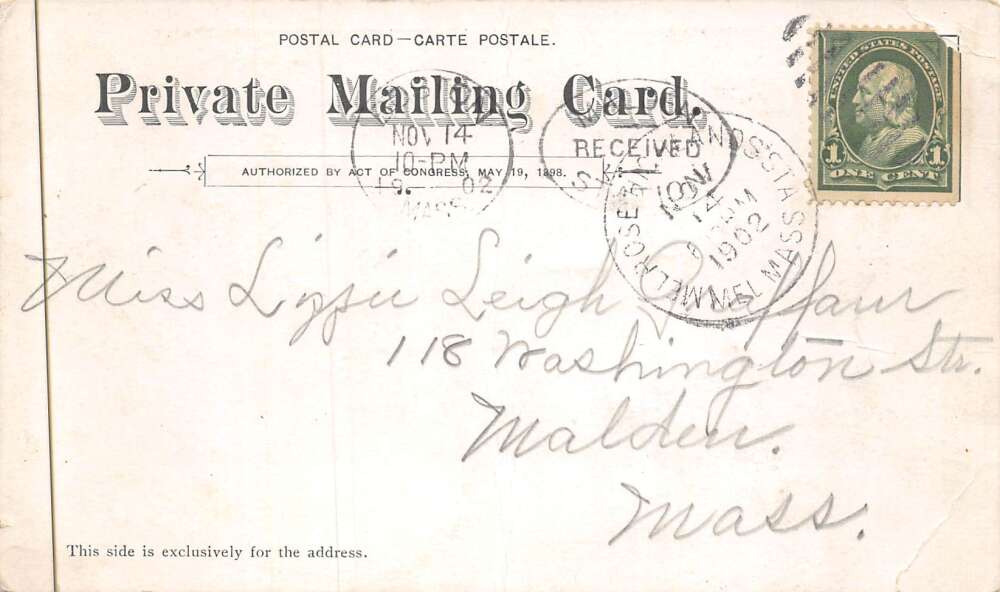 POSTAL CARD—CARTE POSTALE.
Private Mailing Card.
AUTHORIZED BY ACT OF CONGRESS, MAY 19, 1898.
NOV 14
10-PM
1902
MASS.
RECEIVED
MELROSE HIGHLANDS STA
NOV
14
PM
1902
MEL MASS
UNITED STATES POSTAGE
1 1
ONE CENT
Miss Lizzie Leigh
118 Washington Str.
Malden.
Mass.
This side is exclusively for the address.